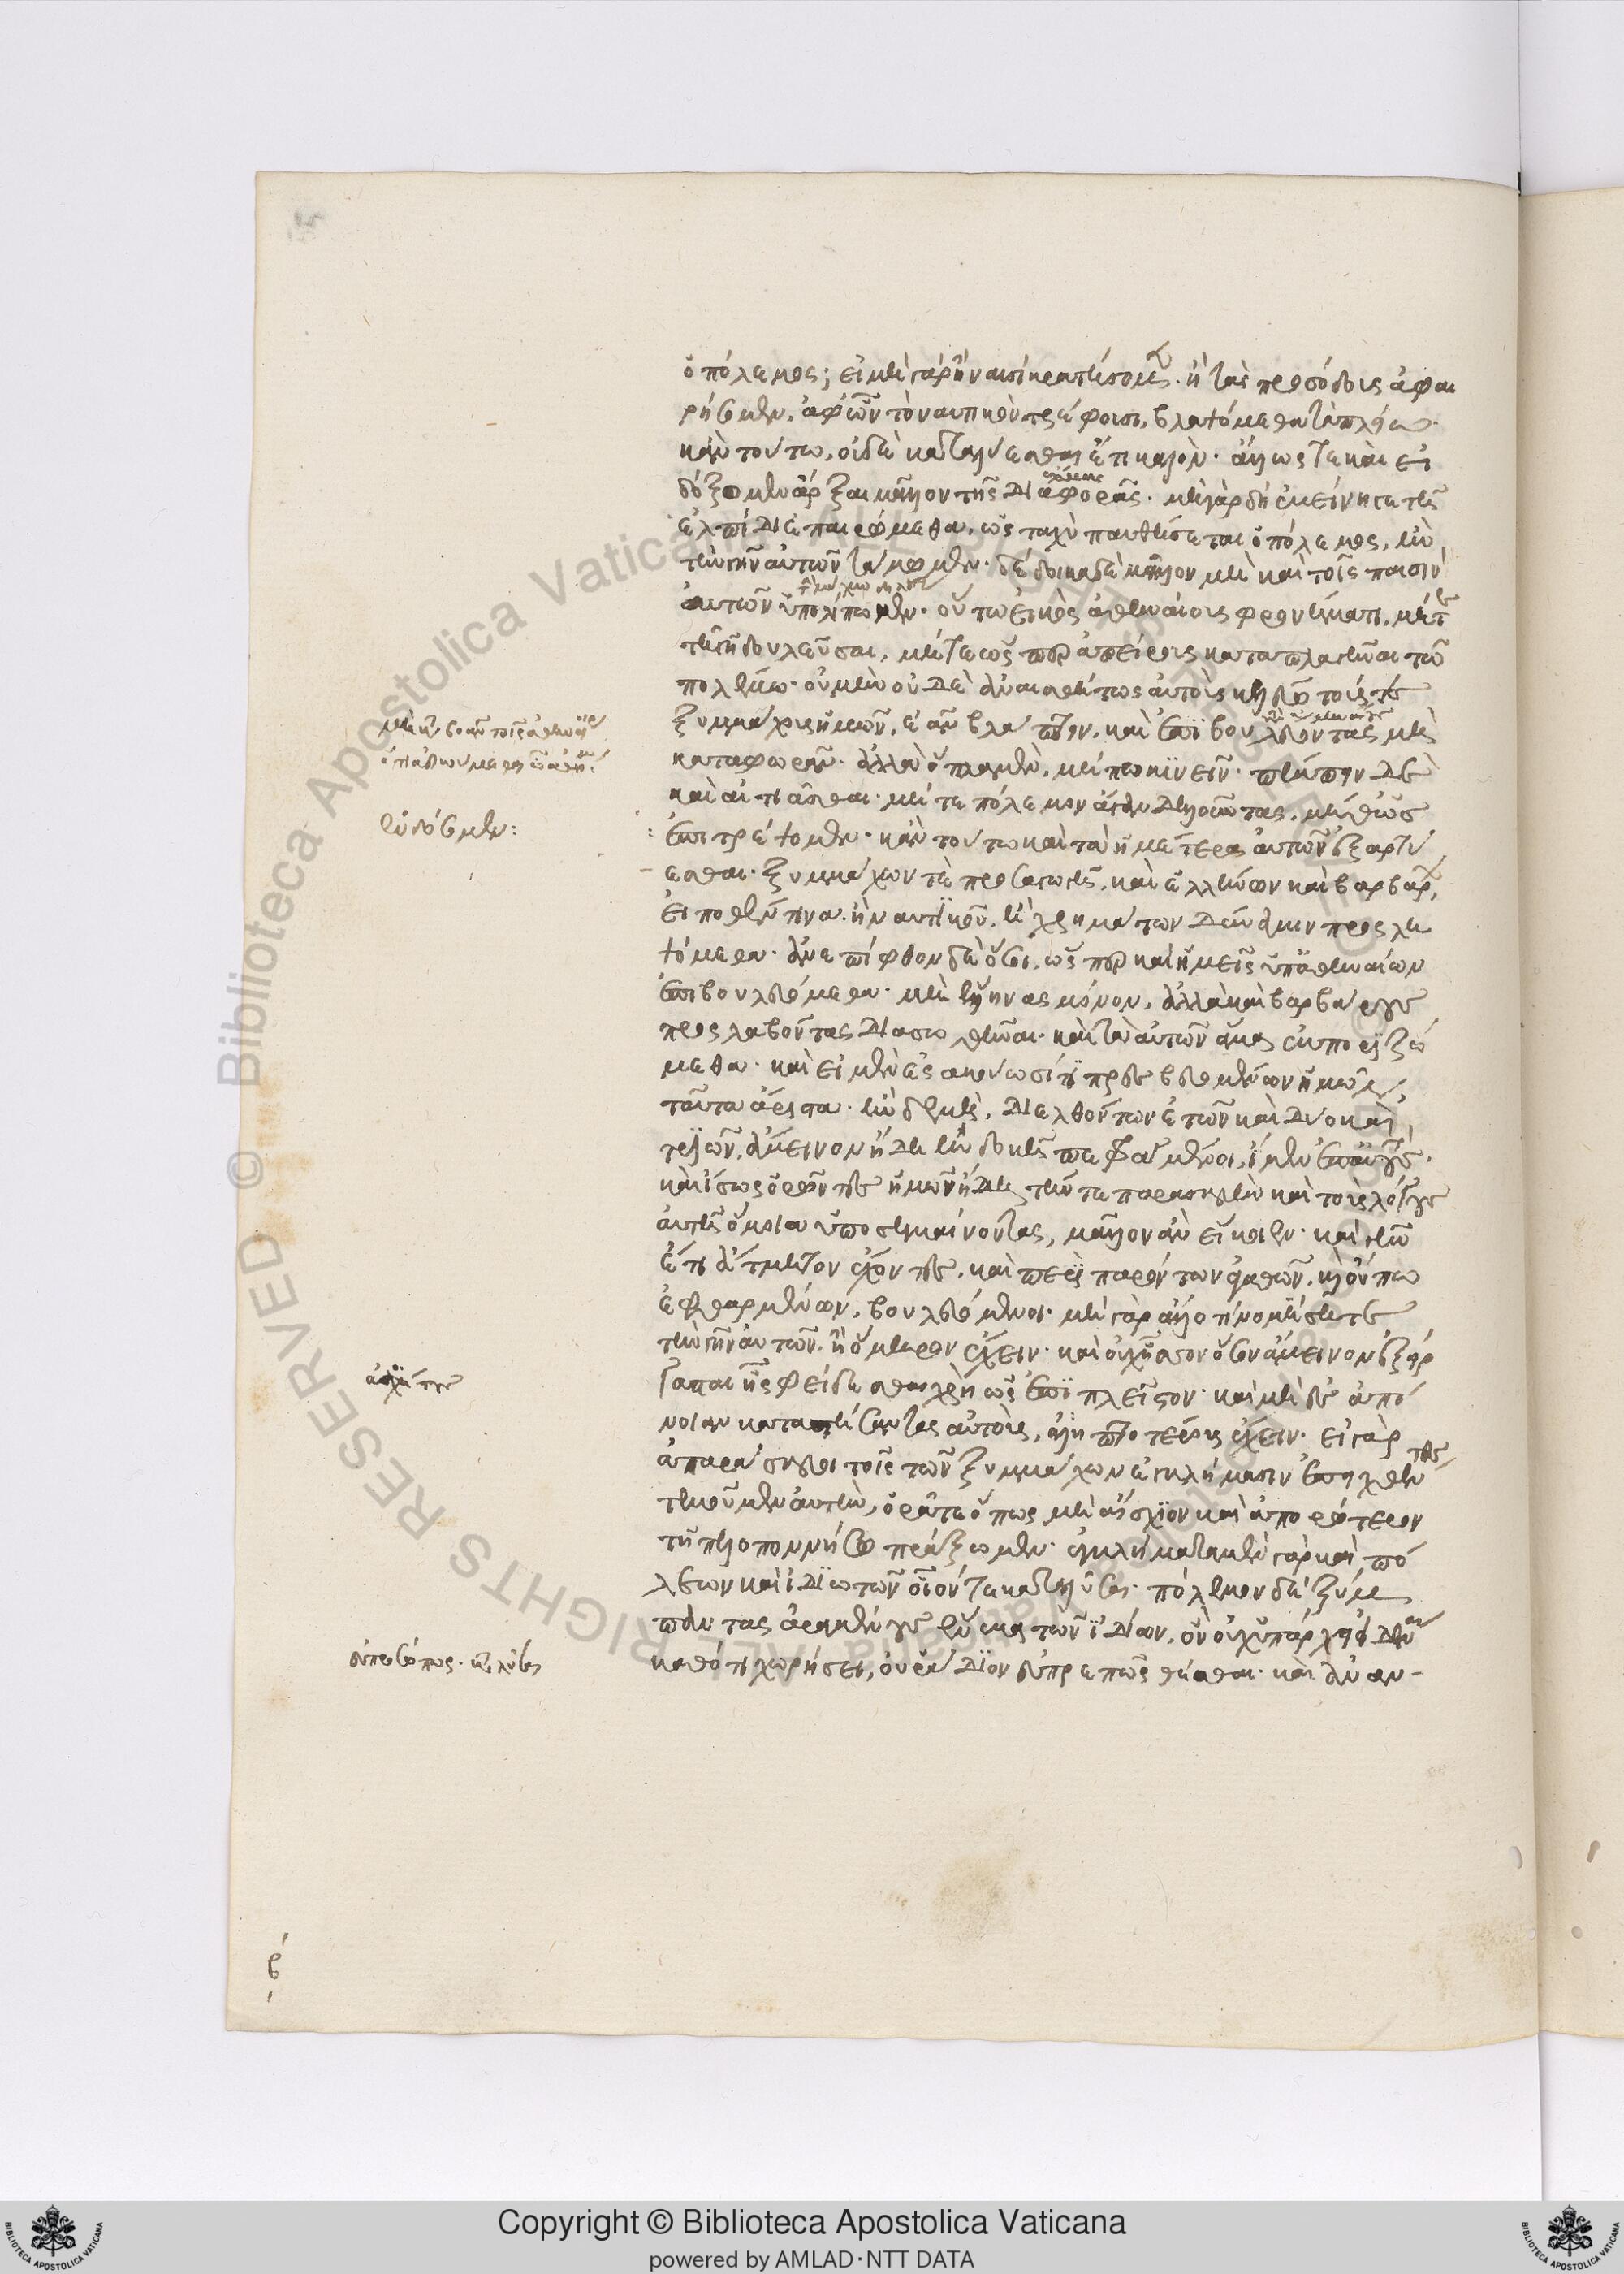 ὁ πόλεμος; εἰ μὴ γὰρ ἢ ναυσὶ κρατήσομεν. ἢ τὰς προσόδους ἀφαι
ρήσομεν. ἀφ' ὧν τὸ ναυτικὸν τρέφουσι, βλαψόμεθα τὰ πλείω.
κἀν τούτω, οὐδὲ καταλύεσθαι ἔτι καλὸν. ἄλλως τε καὶ εἰ
δόξομεν ἄρξαι μᾶλλον τῆς διαφορᾶς. μὴ γὰρ δὴ ἐκείνη γε τῆ
ἐλπίδι ἐπαιρώμεθα. ὡς ταχὺ παυθήσεται ὁ πόλεμος, ἢν
τὴν γῆν αὐτῶν τάμωμεν. δέδοικα δὲ μᾶλλον μὴ καὶ τοῖς παισὶν
αὐτῶν ὑπολίπωμεν. οὕτω εἰκὸς ἀθηναίους φρονήματι, μήτε
τῆ γῆ δουλεῦσαι, μήτε ὥσπερ ἀπείρους καταπλαγῆναι τῶ
πολέμω. οὐ μὴν οὐδὲ ἀναισθήτως αὐτοὺς κελεύω τούς τε
ξυμμάχους ἡμῶν, ἐᾶν βλάπτειν. καὶ ἐπιβουλεύοντας μὴ
καταφωρᾶν. ἀλλὰ ὅπλα μὲν, μήπω κινεῖν. πέμπειν δὲ
καὶ αἰτιᾶσθαι. μήτε πόλεμον ἄγαν δηλοῦντας, μήθ' ὡς
ἐπιτρέψομεν. κἀν τούτω καὶ τὰ ἡμέτερα αὐτῶν ἐξαρτύ
εσθαι. ξυμμάχων τε προσαγωγῆ, καὶ ἑλλήνων καὶ βαρβάρων,
εἴ ποθέν τινα. ἢ ναυτικοῦ. ἢ χρημάτων δύναμιν προσλη
ψόμεθα. ἀνεπίφθονον δὲ ὅσοι, ὥσπερ καὶ ἡμεῖς ὑπ' ἀθηναίων
ἐπιβουλευόμεθα. μὴ ἕλληνας μόνον, ἀλλὰ καὶ βαρβάρους
προσλαβόντας διασωθῆναι. καὶ τὰ αὐτῶν ἅμα ἐκποριζώ
μεθα. καὶ εἰ μὲν ἐσακούωσί τι πρεσβευομένων ἡμῶν,
ταῦτα ἄριστα. ἢν δὲ μὴ, διελθόντων ἐτῶν καὶ δύο καὶ
τριῶν, ἄμεινον ἤδη ἢν δοκῆ πεφραγμένοι, ἴμεν ἐπ' αὐτούς.
καὶ ἴσως ὁρῶντες ἡμῶν ἤδη τήν τε παρασκευὴν καὶ τοὺς λόγους
αὐτῆ ὅμοια ὑποσημαίνοντας, μᾶλλον ἂν εἴκοιεν. καὶ γῆν
ἔτι ἄτμητον ἔχοντες. καὶ περὶ παρόντων ἀγαθῶν. καὶ οὔπω
ἐφθαρμένων. βουλευόμενοι. μὴ γὰρ ἄλλο τι νομίσητε
τὴν γῆν αὐτῶν. ἢ ὅμηρον ἔχειν. καὶ οὐχ ἧσσον ὅσον ἄμεινον ἐξείρ
γασται ἧς φείδεσθαι χρὴ ὡς ἐπὶ πλεῖστον. καὶ μὴ δι' ἀπό
νοιαν καταστήσαντας αὐτοὺς, ἀληπτοτέρους ἔχειν. εἰ γὰρ
ἀπαράσκευοι τοῖς τῶν ξυμμάχων ἐγκλήμασιν ἐπειχθέντες
τεμοῦμεν αὐτὴν, ὁρᾶτε ὅπως μὴ αἴσχιον καὶ ἀπορώτερον
τῆ πελοποννήσω πράξωμεν. ἐγκλήματα μὲν γὰρ καὶ πό
λεων καὶ ἰδιωτῶν οἷόν τε καταλῦσαι. πόλεμον δὲ ξύμ
παντας ἀραμένους ἕνεκα τῶν ἰδίων. ὃν οὐχ ὑπάρχει εἰδέναι
καθότι χωρήσει, οὐ ῥάδιον εὐπρεπῶς θέσθαι. καὶ ἀναν-
ἐνδώσομεν: